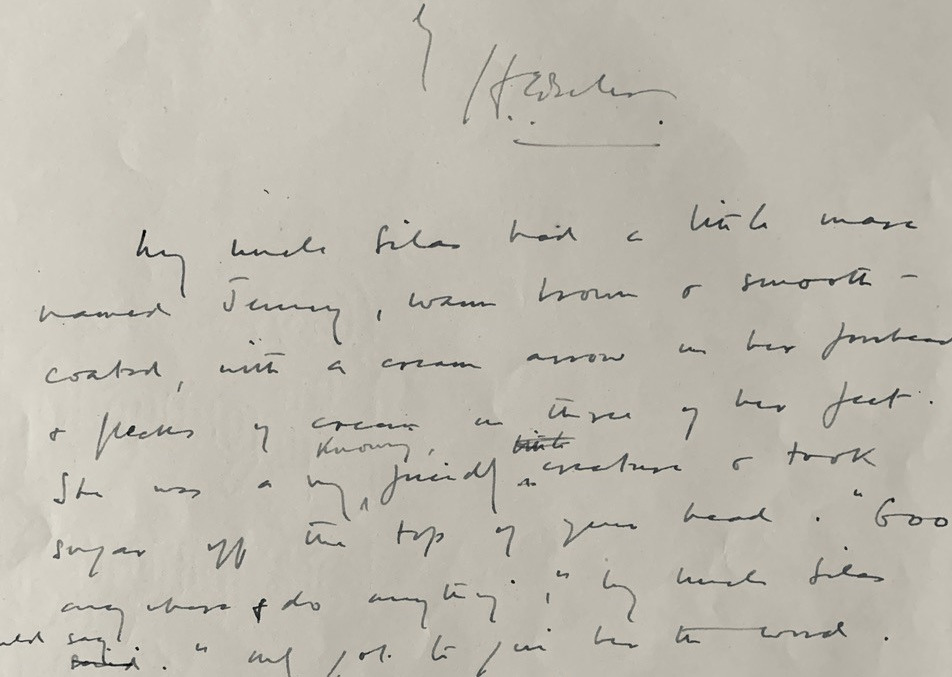 by
H.E. Bates
My uncle Silas had a little mare
named Jenny, warm brown & smooth-
coated, with a cream arrow on her forehead
& flecks of cream on three of her feet.
knowing, little
She was a very friendly creature & took
sugar off the top of your head. "Goo
anywhere & do anything," my uncle Silas
uld say
said. "Only got to give her the word.